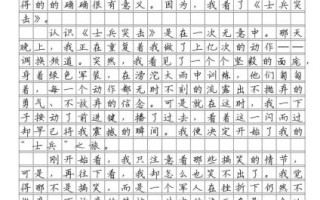 得的的确确很有意义。因此，我看了《士兵突
击》。
认识《士兵突击》是在一次无意中。那天
晚上，我正在重复着我做了上亿次的动作——
调换频道。突然，我看见了一个个坚毅的面庞，
身着绿色军装，在滂沱大雨中训练，他们匍匐
着，每一个动作都无时不刻的流露出不抛弃的
勇气、不放弃的信念。可是，就在我想按一下
子按动了前进键，播了过去，看着这一闪而过
却早已将我震撼的瞬间。我便决定开始了我的
“士兵”之旅。
刚开始看，我只注意着那些搞笑的情节，
可是，再往下看，我却怎么也笑不出了。我觉
得那不是搞笑，而是一个军人在挫折下仍然不